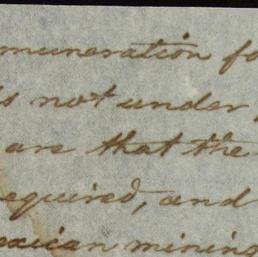 muneration fo
s not under
are that the
equired, and
exican mining